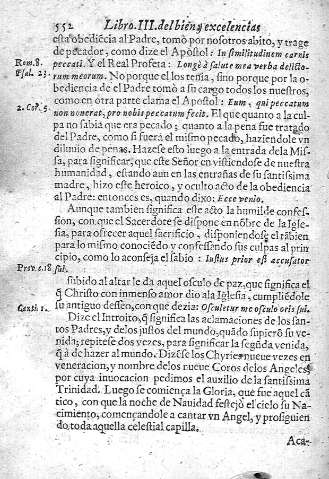 552 Libro. III. del bien, y excelencias
esta obediẽcia al Padre, tomò por nosotros abito, y trage
de pecador, como dize el Apòstol: In similitudinem carnis
Rom. 8. peccati. Y el Real Profeta: Longè à salute mea verba delicto-
Psal. 23. rum meorum. No porque el los tenia, sino porque por la o-
bediencia de el Padre tomò a su cargo todos los nuestros,
como en otra parte clama el Apostol: Eum, qui peccatum
2. Cor. 5. non noverat, pro nobis peccatum fecit. El que quanto a la cul-
pa no sabia que era pecado; quanto a la pena fue tratado
del Padre, como si fuera el mismo pecado, haziendole vn
diluvio de penas. Hazese esto luego a la entrada de la Mis-
sa, para significar, que este Señor en vistiendose de nuestra
humanidad, estando aun en las entrañas de su santissima
madre, hizo este heroico, y oculto acto de la obediencia
al Padre: entonces es, quando dixo: Ecce venio.
Aunque tambien significa este acto la humilde confes-
sion, con que el Sacerdote se dispone en nõbre de la Igle-
sia, para ofrecer aquel sacrificio; disponiendose el tãbien
para lo mismo conociẽdo y confessando sus culpas al prin-
cipio, como lo aconseja el sabio: Iustus prior est accusator
Prov. c. 18 sui.
subido al altar le da aquel osculo de paz, que significa el
q̃ Christo con inmenso amor dio a la Iglesia, cumpliẽdole
Canti 1. su antiguo desseo, con que dezia: Osculetur me osculo oris sui.
Dize el Introito, q̃ significa las aclamaciones de los san-
tos Padres, y de los justos del mundo, quãdo supierõ su ve-
nida; repitese dos vezes, para significar la segũda venida,
q̃ à de hazer al mundo. Dizẽse los Chyries nueve vezes en
veneracion, y nombre de los nueve Coros de los Angeles,
por cuya invocacion pedimos el auxilio de la santissima
Trinidad. Luego se comiença la Gloria, que fue aquel cã-
tico, con que la noche de Navidad festejò el cielo su Na-
cimiento, començandole a cantar vn Angel, y prosiguien
do toda aquella celestial capilla.
Aca-